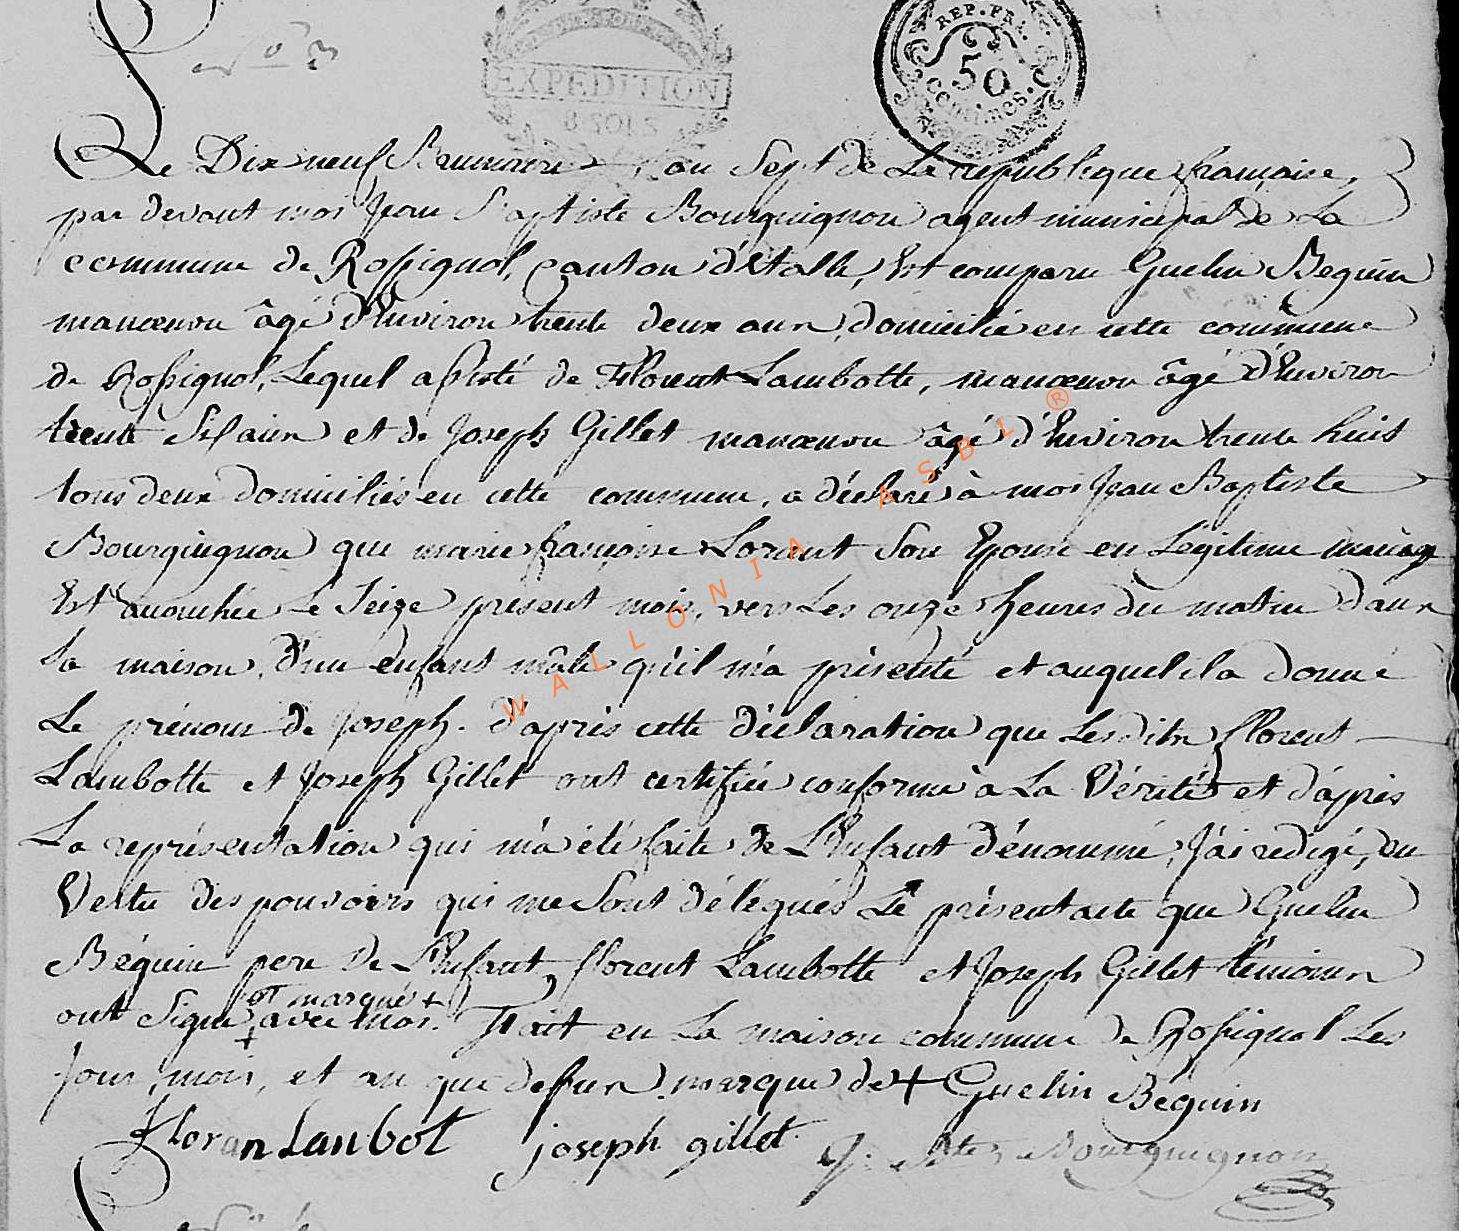 N° 3
EXPEDITION
8 SOLS
REP. FRA.
50
centimes.
Le Dix neuf Brumaire, an Sept de La république française,
par devant moi Jean Baptiste Bourguignon agent municipal de La
commune de Rossignol, canton d'étalle, Est comparu Guelin Beguin
manœuvre âgé d'Environ trente deux ans, domicilié en cette commune
de Rossignol, Lequel assisté de Florent Lambotte, manœuvre âgé d'Environ
trente Six ans et de Joseph Gillet manœuvre âgé d'Environ trente huit
tous deux domiciliés en cette commune, a déclaré à moi Jean Baptiste
Bourguignon que marie françoise Lorant Son Epouse en Légitime mariage
Est accouchée Le Seize présent mois, vers Les onze heures du matin dans
Sa maison, d'un enfant mâle qu'il m'a présenté et auquel il a donné
Le prénom de Joseph. d'après cette déclaration que Lesdits florent
Lambotte et Joseph Gillet ont certifiée conforme à La Vérité et d'après
La représentation qui m'a été faite de L'Enfant dénommé, J'ai redigé, en
Vertu des pouvoirs qui me Sont délégués Le présent acte que Guelin
Béguin pere de L'Enfant, florent Lambotte et Joseph Gillet témoins
ont Signé et marqué + avec moi. Fait en La maison commune de Rossignol Les
Jour, mois, et an que dessus. marque de + Guelin Béguin
Floran Lanbot joseph gillet J: Bte Bourguignon
WALLONIA ASBL ®